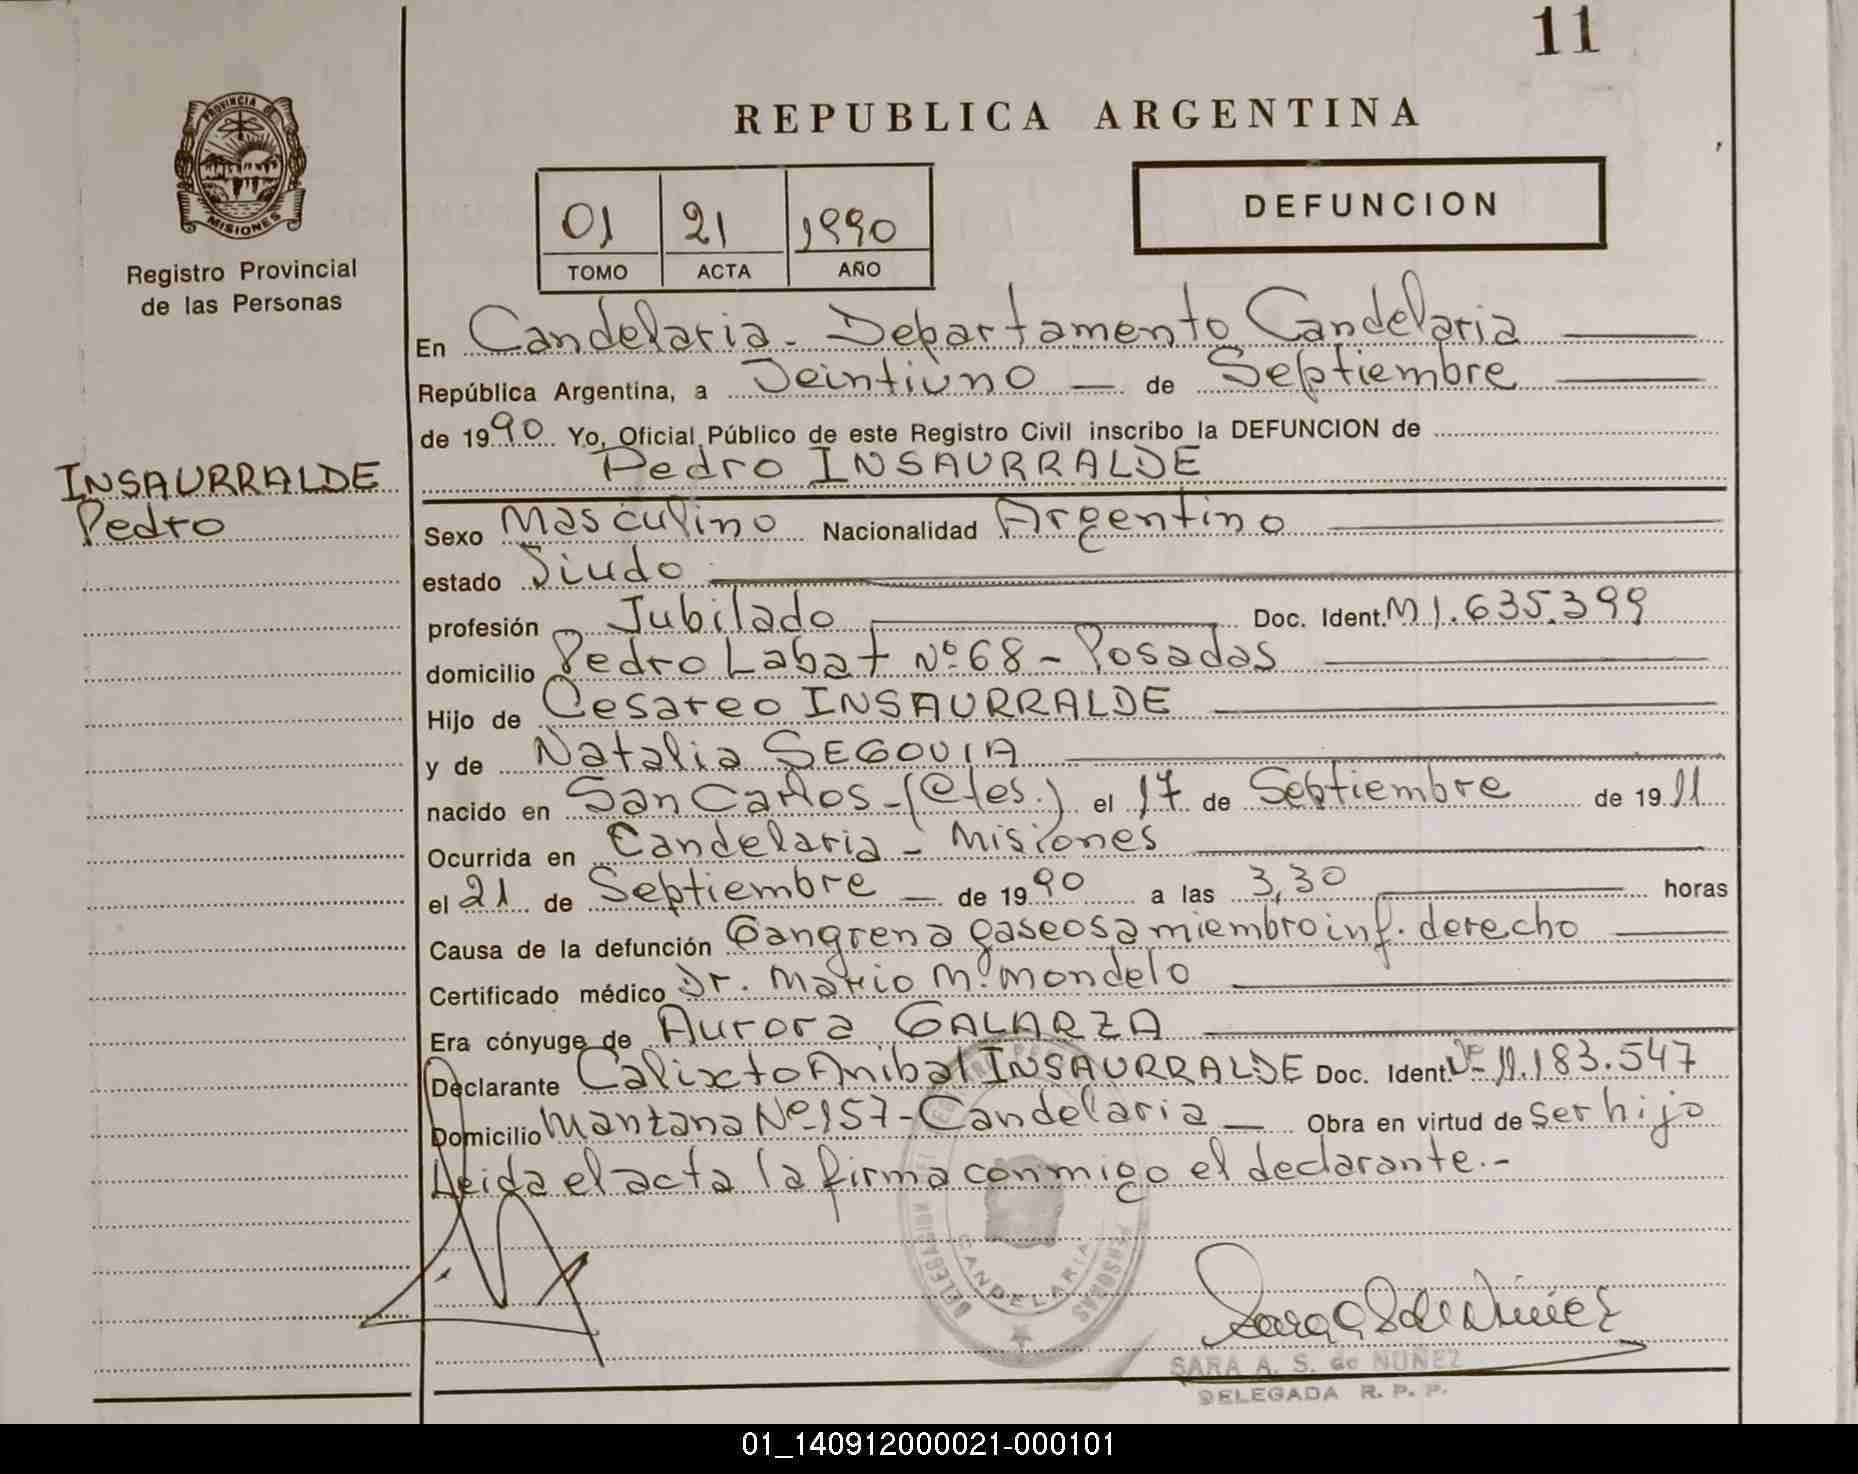 11
REPUBLICA ARGENTINA
PROVINCIA DE
MISIONES
Registro Provincial
de las Personas
01 21 1990
TOMO ACTA AÑO
DEFUNCION
En Candelaria - Departamento Candelaria
República Argentina, a Veintiuno — de Septiembre
de 1990 Yo, Oficial Público de este Registro Civil inscribo la DEFUNCION de
Pedro INSAURRALDE
INSAURRALDE
Pedro
Sexo Masculino Nacionalidad Argentino
estado Viudo
profesión Jubilado Doc. Ident. M 1.635.399
domicilio Pedro Labat Nº 68 - Posadas
Hijo de Cesareo INSAURRALDE
y de Natalia SEGOVIA
nacido en San Carlos - (Ctes.) el 17 de Septiembre de 1911
Ocurrida en Candelaria - Misiones
el 21 de Septiembre — de 1990 a las 3,30 horas
Causa de la defunción Gangrena gaseosa miembro inf. derecho
Certificado médico Dr. Mario M. Mondelo
Era cónyuge de Aurora GALARZA
Declarante Calixto Anibal INSAURRALDE Doc. Ident. Nº 11.183.547
Domicilio Manzana Nº 157 - Candelaria — Obra en virtud de ser hijo
Leida el acta la firma conmigo el declarante.-
CANDELARIA
SARA A. S. de NUÑEZ
DELEGADA R. P. P.
01_140912000021-000101